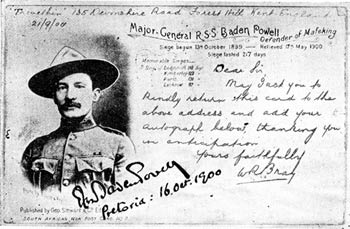 To mother 135 Devonshire Road Forest Hill Kent England
21/9/00
Major-General R.S.S. Baden Powell
Defender of Mafeking
Siege began 13th October 1899 — Relieved 17th May 1900
Siege lasted 217 days
Memorable Sieges
Paris
Lucknow 87
Dear Sir
May I ask you to
kindly return this card to the
above address and add your
autograph below, thanking you
in anticipation
Yours faithfully
W.R. Bray
Baden Powell
Pretoria: 16. Oct. 1900
Published by Geo. Stewart & Co.
SOUTH AFRICAN WAR POST CARD No 7